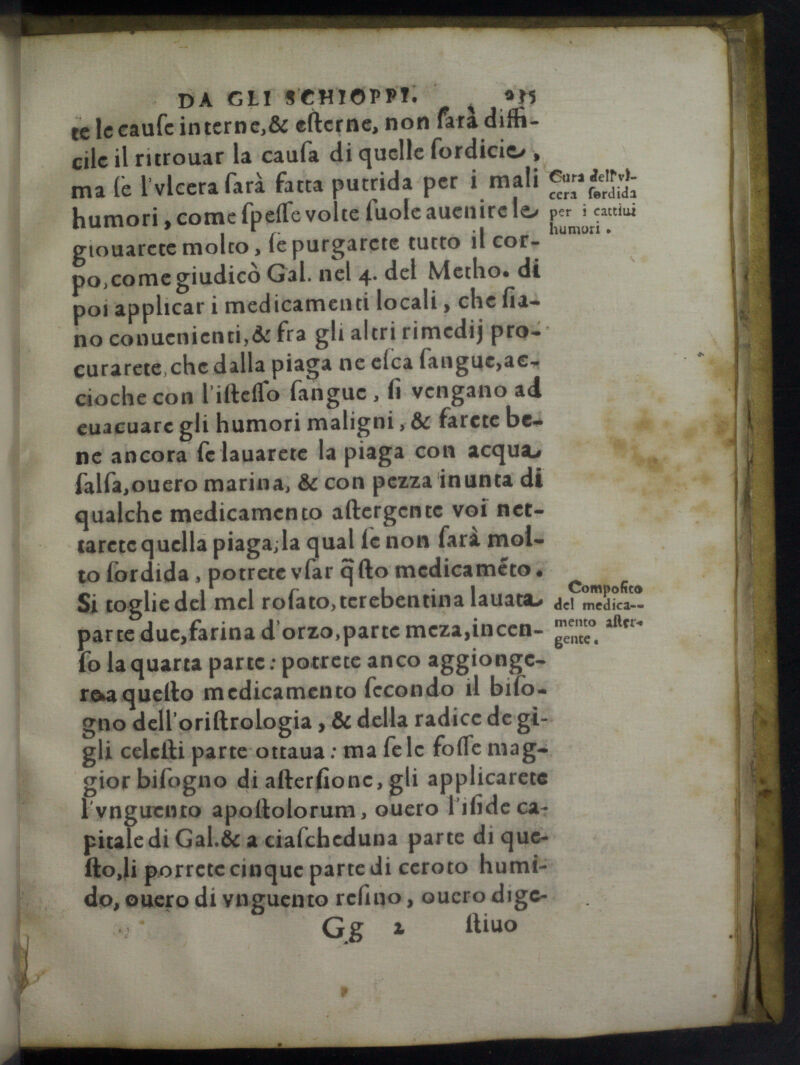 DA GLI SCHIOPPI. 235
te le cauſe interne,& eſterne, non ſarà diffi-
cile il ritrouar la cauſa di quelle ſordicie,
ma ſe l'vlcera ſarà fatta putrida per i mali
humori, come ſpeſſe volte ſuole auenire le
giouarete molto, ſe purgarete tutto il cor-
po,come giudicò Gal. nel 4. del Metho. di
poi applicar i medicamenti locali, che ſia-
no conuenienti,& fra gli altri rimedij pro-
curarete,che dalla piaga ne eſca ſangue,ac-
cioche con l'iſteſſo ſangue, ſi vengano ad
euacuare gli humori maligni, & farete be-
ne ancora ſe lauarete la piaga con acqua
ſalſa,ouero marina, & con pezza inunta di
qualche medicamento aſtergente voi net-
tarete quella piaga;la qual ſe non ſarà mol-
to ſordida, potrete vſar q̃ſto medicamẽto.
Si toglie del mel roſato,terebentina lauata
parte due,farina d'orzo,parte meza,incen-
ſo la quarta parte: potrete anco aggionge-
re a queſto medicamento ſecondo il biſo-
gno dell'oriſtrologia, & della radice de gi-
gli celeſti parte ottaua: ma ſe le foſſe mag-
gior biſogno di aſterſione, gli applicarete
l'vnguento apoſtolorum, ouero l'iſide ca-
pitale di Gal.& a ciaſcheduna parte di que-
ſto,li porrete cinque parte di ceroto humi-
do, ouero di vnguento reſino, ouero dige-
Gg 2 ſtiuo
Cura dell'vl-
cera ſordida
per i cattiui
humori.
Compoſito
del medica-
mento aſter-
gente.